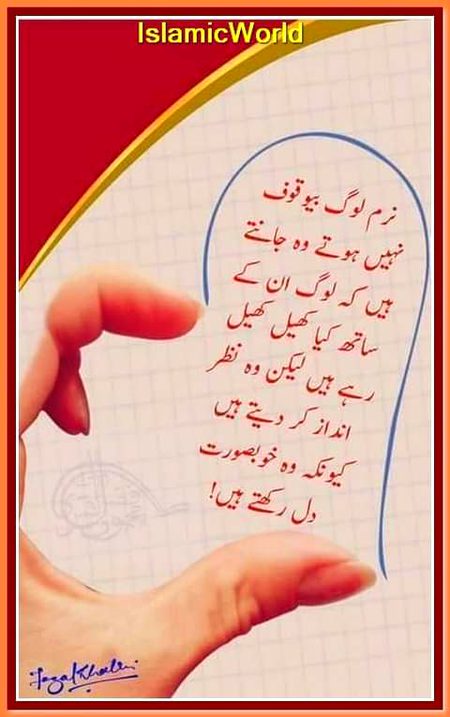 IslamicWorld
نرم لوگ بیوقوف
نہیں ہوتے وہ جانتے
ہیں کہ لوگ ان کے
ساتھ کیا کھیل کھیل
رہے ہیں لیکن وہ نظر
انداز کر دیتے ہیں
کیونکہ وہ خوبصورت
دل رکھتے ہیں!